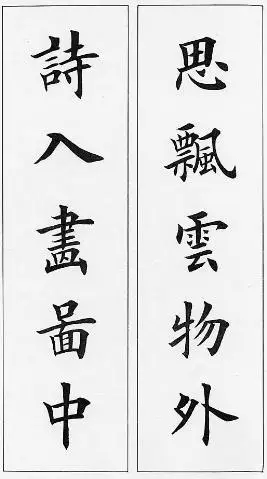 思飄雲物外
詩入畫啚中